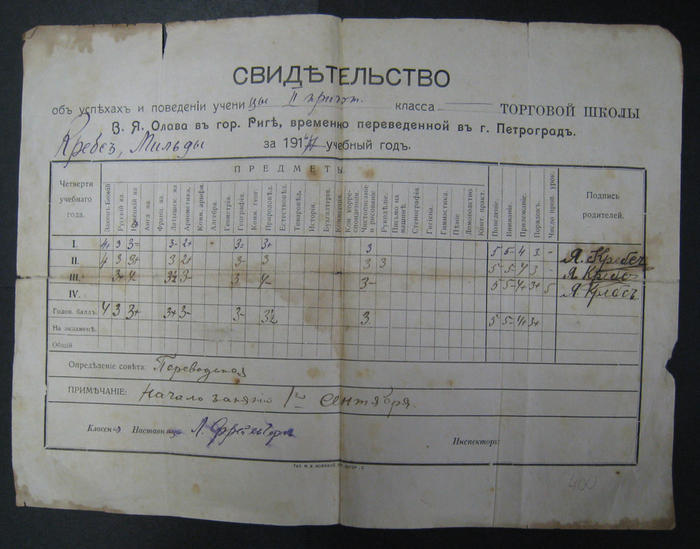 СВИДѢТЕЛЬСТВО
объ успѣхахъ и поведеніи учени цы II пригот. класса ТОРГОВОЙ ШКОЛЫ
В. Я. Олава въ гор. Ригѣ, временно переведенной въ г. Петроградъ.
Кребсъ, Мильды за 191 учебный годъ.
ПРЕДМЕТЫ
Четверти учебнаго года.
Законъ Божій
Русскій яз.
Нѣмецкій яз.
Англ. яз.
Франц. яз.
Латышск. яз.
Ариѳметика.
Комм. ариѳм.
Алгебра.
Геометрія.
Географія.
Комм. геогр.
Природовѣд.
Естествовѣд.
Товаровѣд.
Исторія.
Бухгалтерія.
Чистописаніе и рисованіе.
Рукодѣліе.
Письмо на машинѣ.
Стенографія.
Гигіена.
Гимнастика.
Пѣніе
Домоводство
Конт. практ.
Поведеніе.
Вниманіе.
Прилежаніе.
Порядокъ.
Число проп. урок.
Подпись родителей.
I. 4 3 3- 3- 2+ 3- 3+ 3 5 5- 4 3 - Я. Кребсъ
II. 4 3 3+ 3 3 3 3 5 5- 4 3 Я. Кребсъ
III. 3 3- 5 5- 4 3+ 5 Я. Кребсъ
IV.
Годов. баллъ. 4 3 3+ 3+ 3- 3- 3½ 3 5 5- 4+ 3+
На экзаменѣ.
Общій
Опредѣленіе совѣта: Переводная
ПРИМѢЧАНІЕ: Начало занятій 1го сентября.
Классн Наставни
Инспекторъ:
400